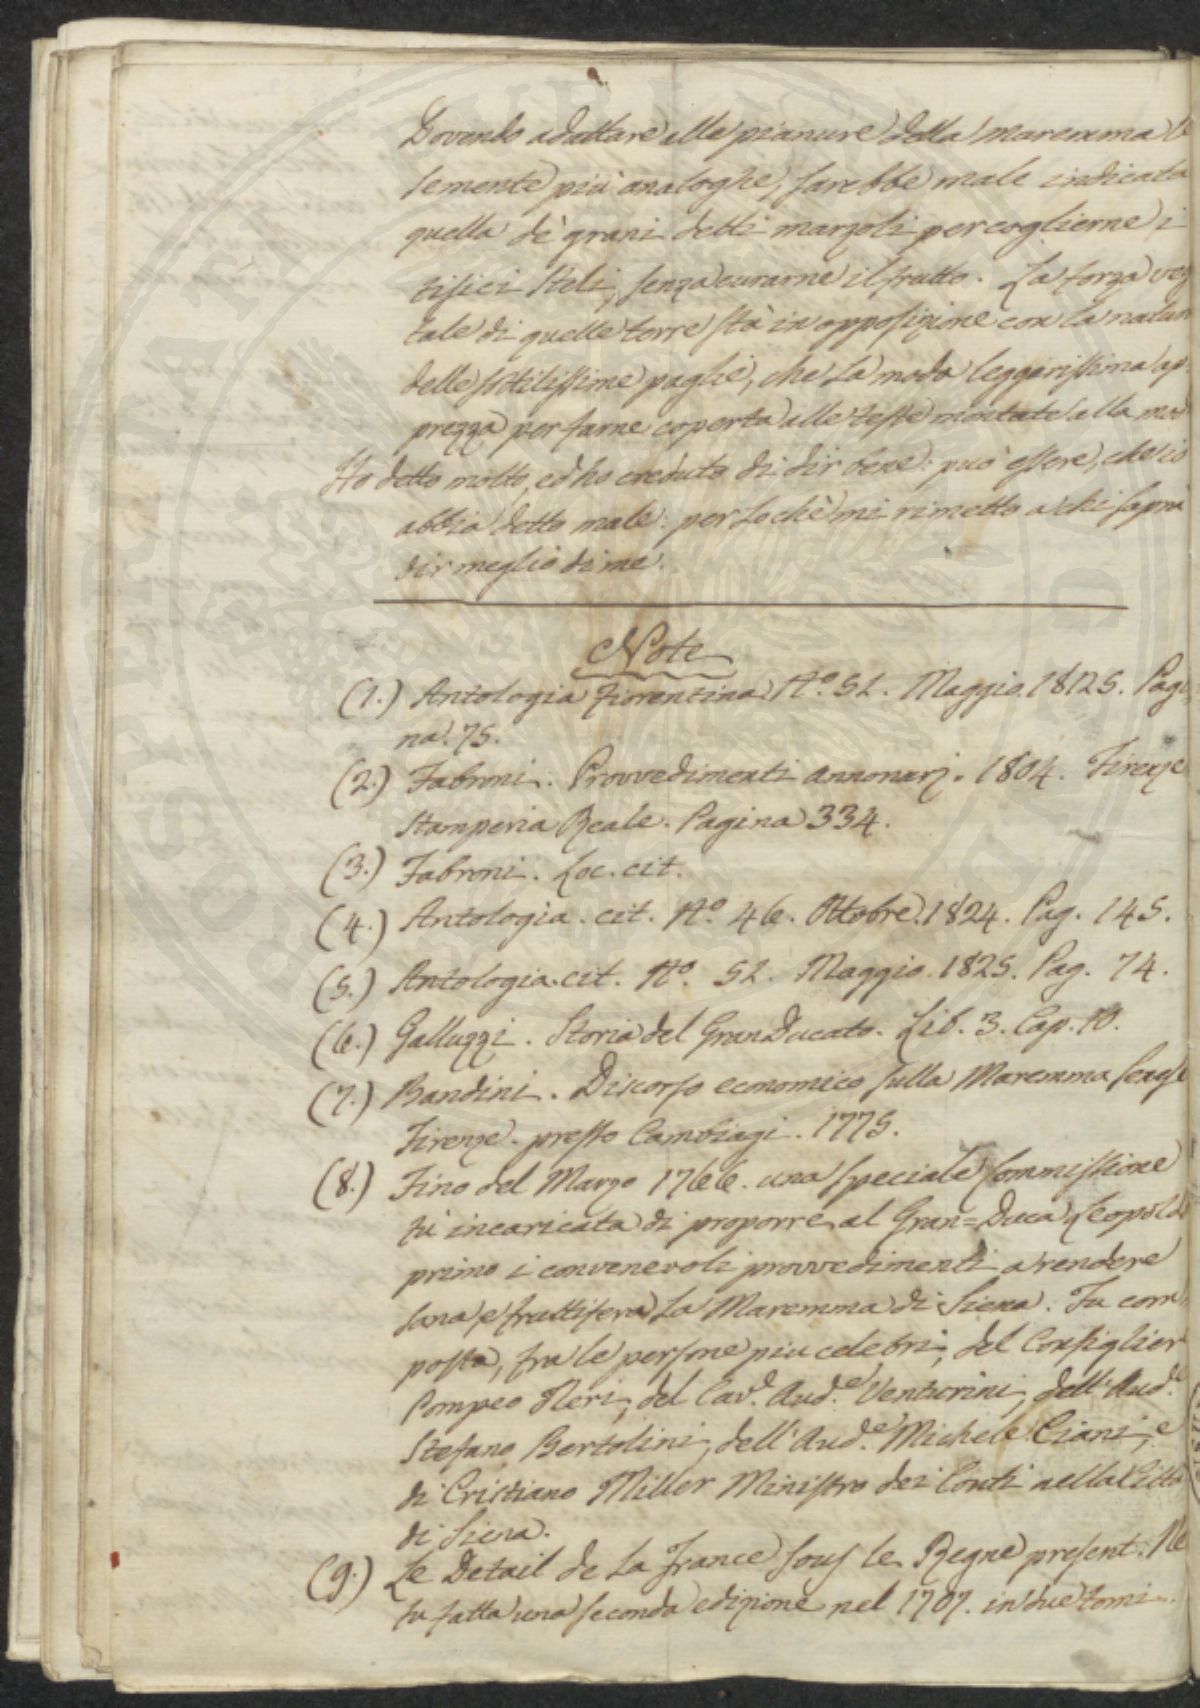 Dovendo adattare alle pianure della maremma le
semente più analoghe, sarebbe male indicata
quella de' grani detti marzoli per coglierne i
tisici steli, senza curarne il frutto. La forza veg
tale di quelle terre stà in opposizione con la natura
delle sottilissime paglie, che la moda leggerissima ap
prezza per farne coperta alle teste montate alla mod
Ho detto molto, ed ho creduto di dir bene: può essere, che io
abbia detto male: per lo chè mi rimetto a chi saprà
dir meglio di me.
Note
(1.) Antologia Fiorentina N.º 52. Maggio. 1825. Pagi
na. 75.
(2.) Fabroni. Provvedimenti annonarj. 1804. Firenze
Stamperia Reale. Pagina 334.
(3.) Fabroni. Loc. cit.
(4.) Antologia. cit. N.º 46. Ottobre. 1824. Pag. 145.
(5.) Antologia. cit. N.º 52. Maggio. 1825. Pag. 74.
(6.) Galluzzi. Storia del GranDucato. Lib. 3. Cap. 10.
(7.) Bandini. Discorso economico sulla Maremma senese
Firenze. presso Cambiagi. 1775.
(8.) Fino del Marzo 1766. una speciale Commissione
fù incaricata di proporre al Gran=Duca Leopoldo
primo i convenevoli provvedimenti a rendere
sana e fruttifera la Maremma di Siena. Fu com
posta, fra le persone piu celebri, del Consiglier
Pompeo Neri, del Cav.e Aud.e Venturini, dell'Aud.e
Stefano Bertolini, dell'Aud.e Michele Ciani, e
di Cristiano Miller Ministro dei Conti nella Città
di Siena.
(9.) Le Detail de la France sous le Regne present. Ne
fu fatta una seconda edizione nel 1707. in due tomi.